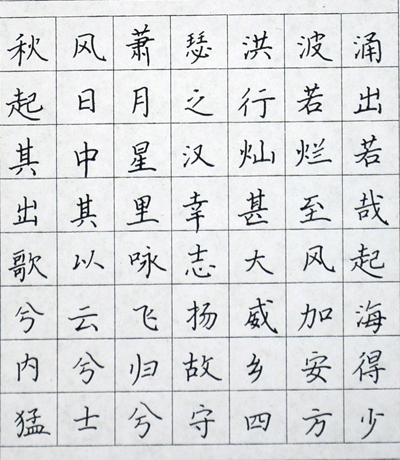 秋风萧瑟洪波涌
起日月之行若出
其中星汉灿烂若
出其里幸甚至哉
歌以咏志大风起
兮云飞扬威加海
内兮归故乡安得
猛士兮守四方少